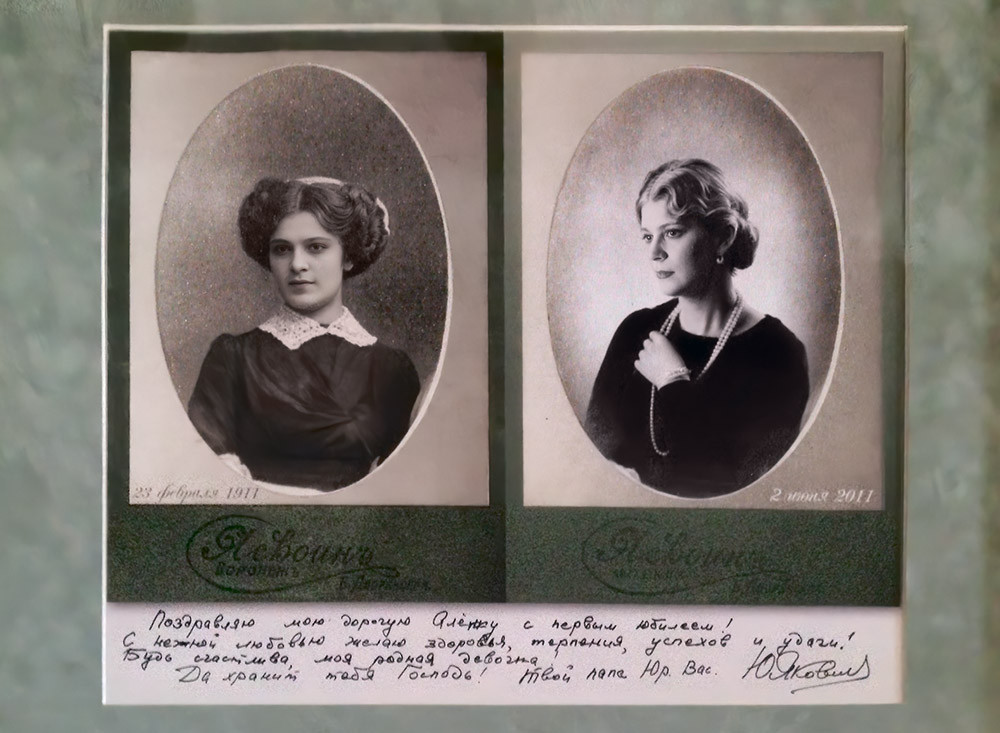 23 февраля 1911
2 июня 2011
Воронежъ
Поздравляю мою дорогую Алёнку с первым юбилеем!
С нежной любовью желаю здоровья, терпения, успехов и удачи!
Будь счастлива, моя родная девочка
Да хранит тебя Господь! Твой папа Юр. Вас.